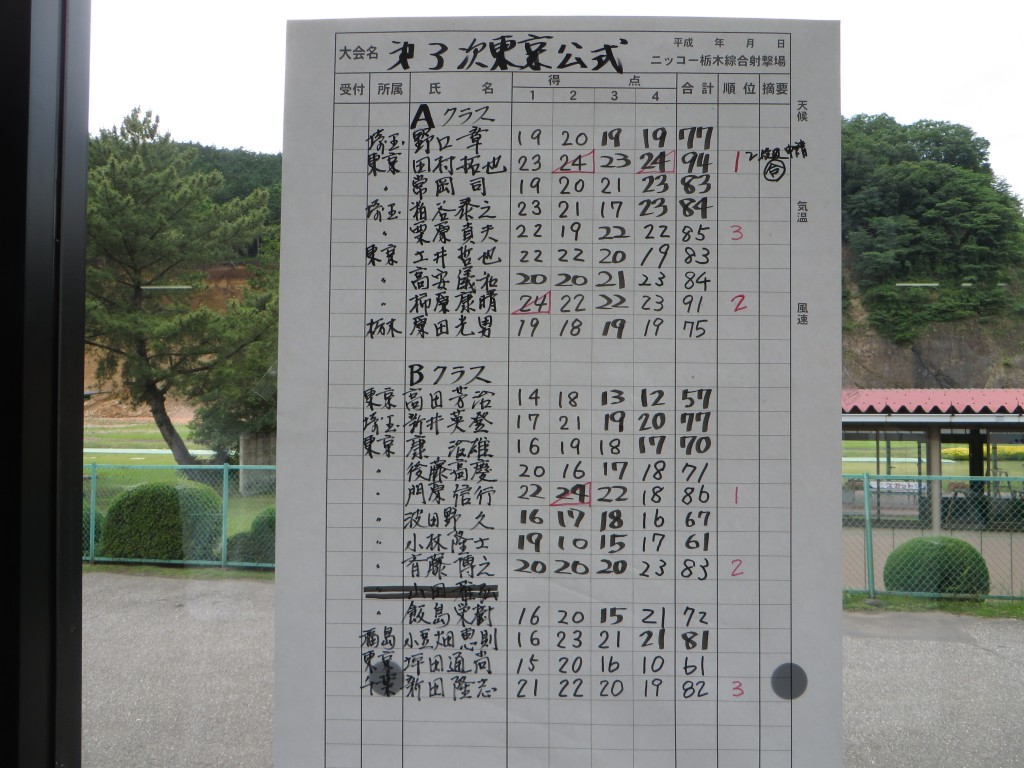 大会名 第3次東京公式 平成 年 月 日
ニッコー栃木綜合射撃場
受付 所属 氏名 得点 合計 順位 摘要
1 2 3 4
天候
気温
風速
Aクラス
埼玉 野口一章 19 20 19 19 77
東京 田村拓也 23 24 23 24 94 1
〃 常岡司 19 20 21 23 83
埼玉 谷泰之 23 21 17 23 84
〃 栗原真夫 22 19 22 22 85 3
東京 土井哲也 22 22 20 19 83
〃 高安儀祐 20 20 21 23 84
〃 栁原康晴 24 22 22 23 91 2
栃木 栗田光男 19 18 19 19 75
Bクラス
東京 高田芳治 14 18 13 12 57
埼玉 新井英登 17 21 19 20 77
東京 康治雄 16 19 18 17 70
〃 後藤高慶 20 16 17 18 71
〃 門原信行 22 24 22 18 86 1
〃 波田野久 16 17 18 16 67
〃 小林隆士 19 10 15 17 61
〃 斉藤博之 20 20 20 23 83 2
小田
〃 飯島栄樹 16 20 15 21 72
福島 小豆畑恵則 16 23 21 21 81
東京 坪田通尚 15 20 16 10 61
千葉 新田隆志 21 22 20 19 82 3